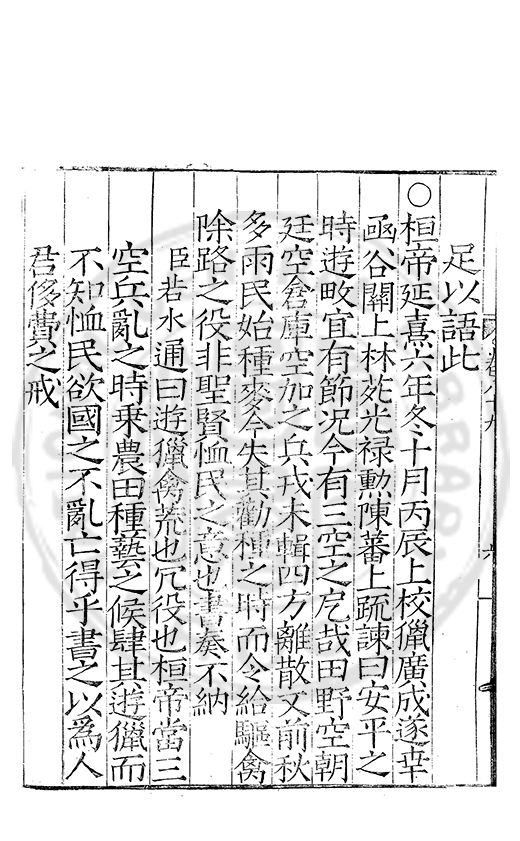 足以語此
○桓帝延熹六年冬十月丙辰上校獵廣成遂幸
函谷關上林苑光祿勲陳蕃上疏諫曰安平之
時遊畋宜有節况今有三空之戹哉田野空朝
廷空倉庫空加之兵戎未輯四方離散又前秋
多雨民始種麥今失其勸種之時而令給驅禽
除路之役非聖賢恤民之意也書奏不納
臣若水通曰遊獵禽荒也冗役也桓帝當三
空兵亂之時乗農田種藝之候肆其遊獵而
不知恤民欲國之不亂亡得乎書之以爲人
君侈費之戒